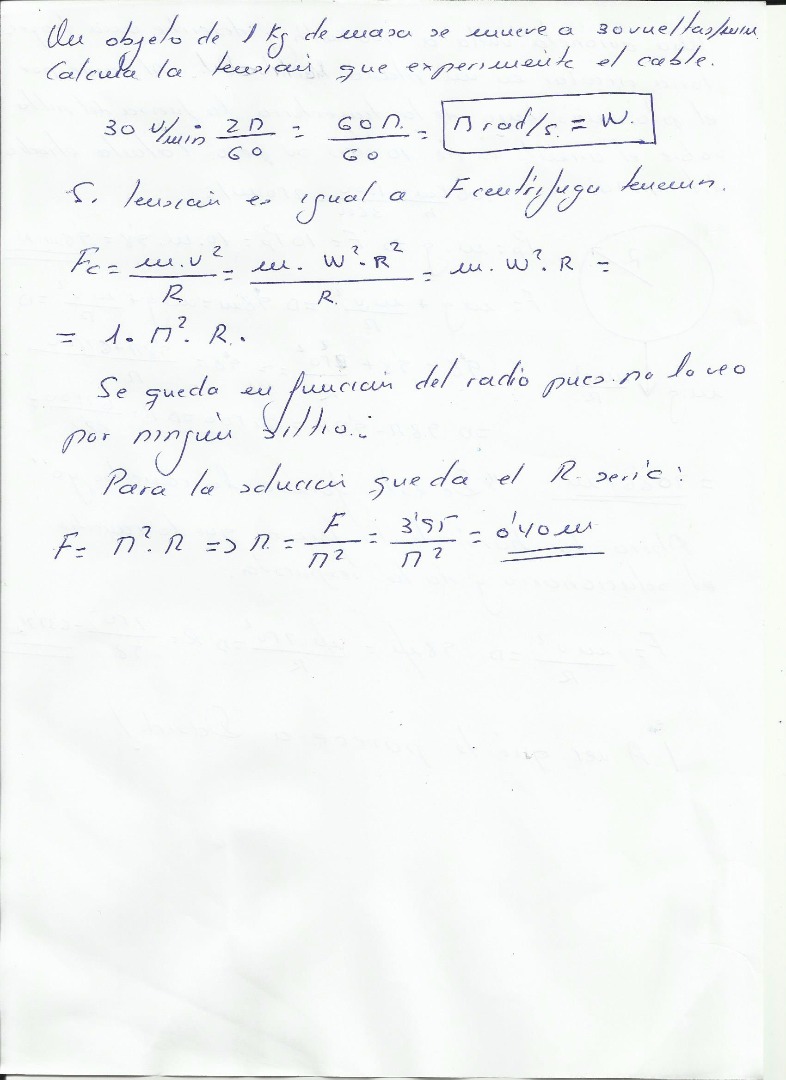 Un objeto de 1 Kg de masa se mueve a 30 vueltas/min.
Calcula la tensión que experimenta el cable.
30 v/min 2π/60 = 60π/60 = π rad/s. = W.
Si tensión es igual a F centrífuga tenemos.
Fc = m.v²/R = m. W².R²/R = m. W². R =
= 1. π². R.
Se queda en función del radio pues no lo veo
por ningún sitio.
Para la solución queda el R sería:
F= π². R => R = F/π² = 3'95/π² = 0'40 m